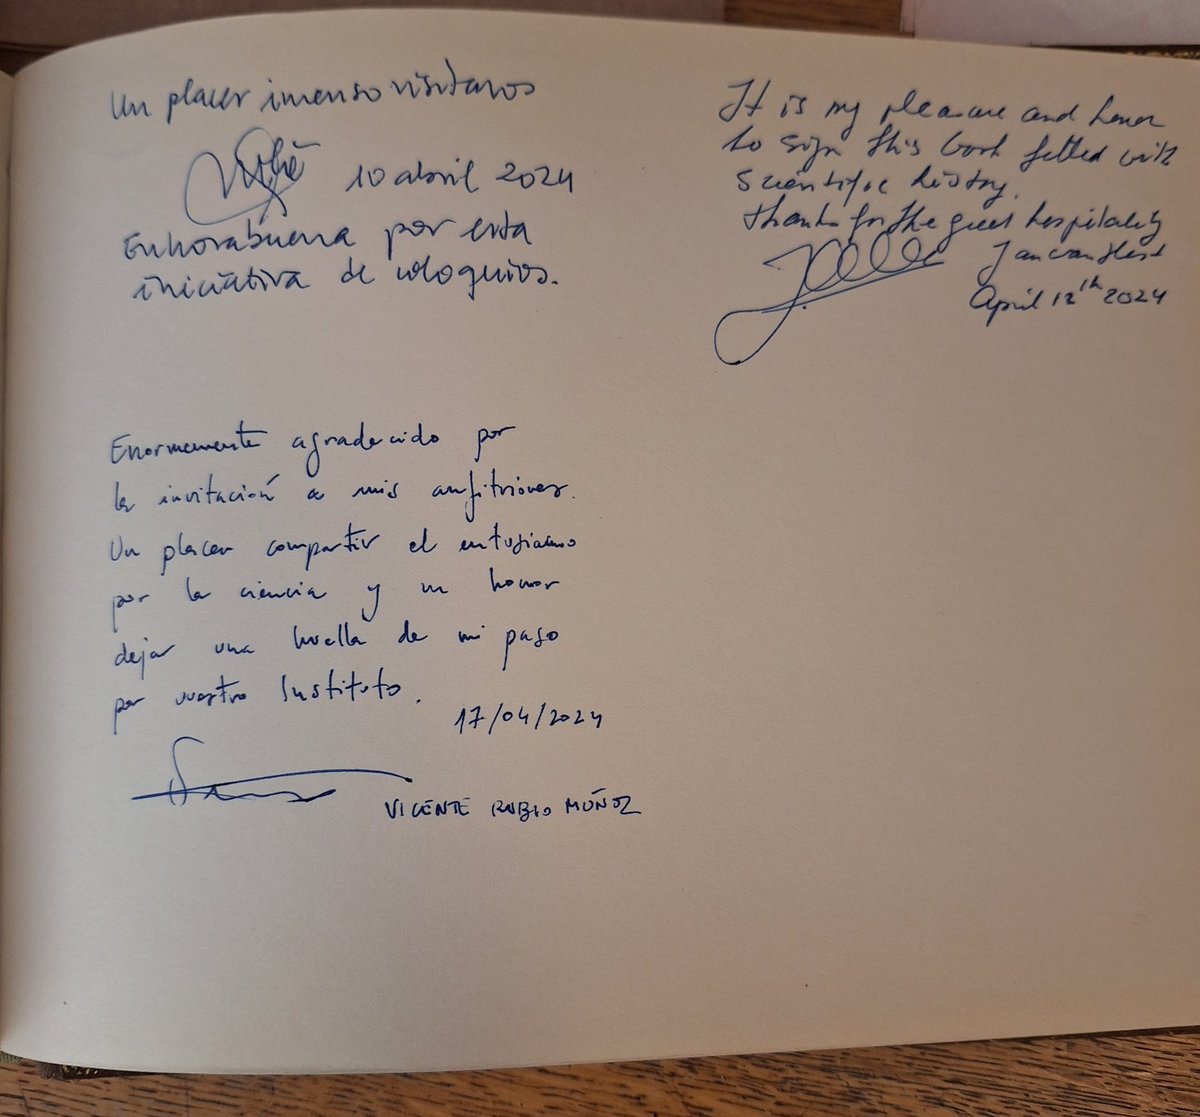 Un placer imenso visitaros
10 abril 2024
Enhorabuena por esta
iniciativa de coloquios.
It is my pleasure and honor
to sign this book filled with
scientific history.
thanks for the great hospitality
Jan van Hest
April 12th 2024
Enormemente agradecido por
la invitación a mis anfitriones.
Un placer compartir el entusiasmo
por la ciencia y un honor
dejar una huella de mi paso
por vuestro Instituto.
17/04/2024
VICENTE RUBIO MÚÑOZ